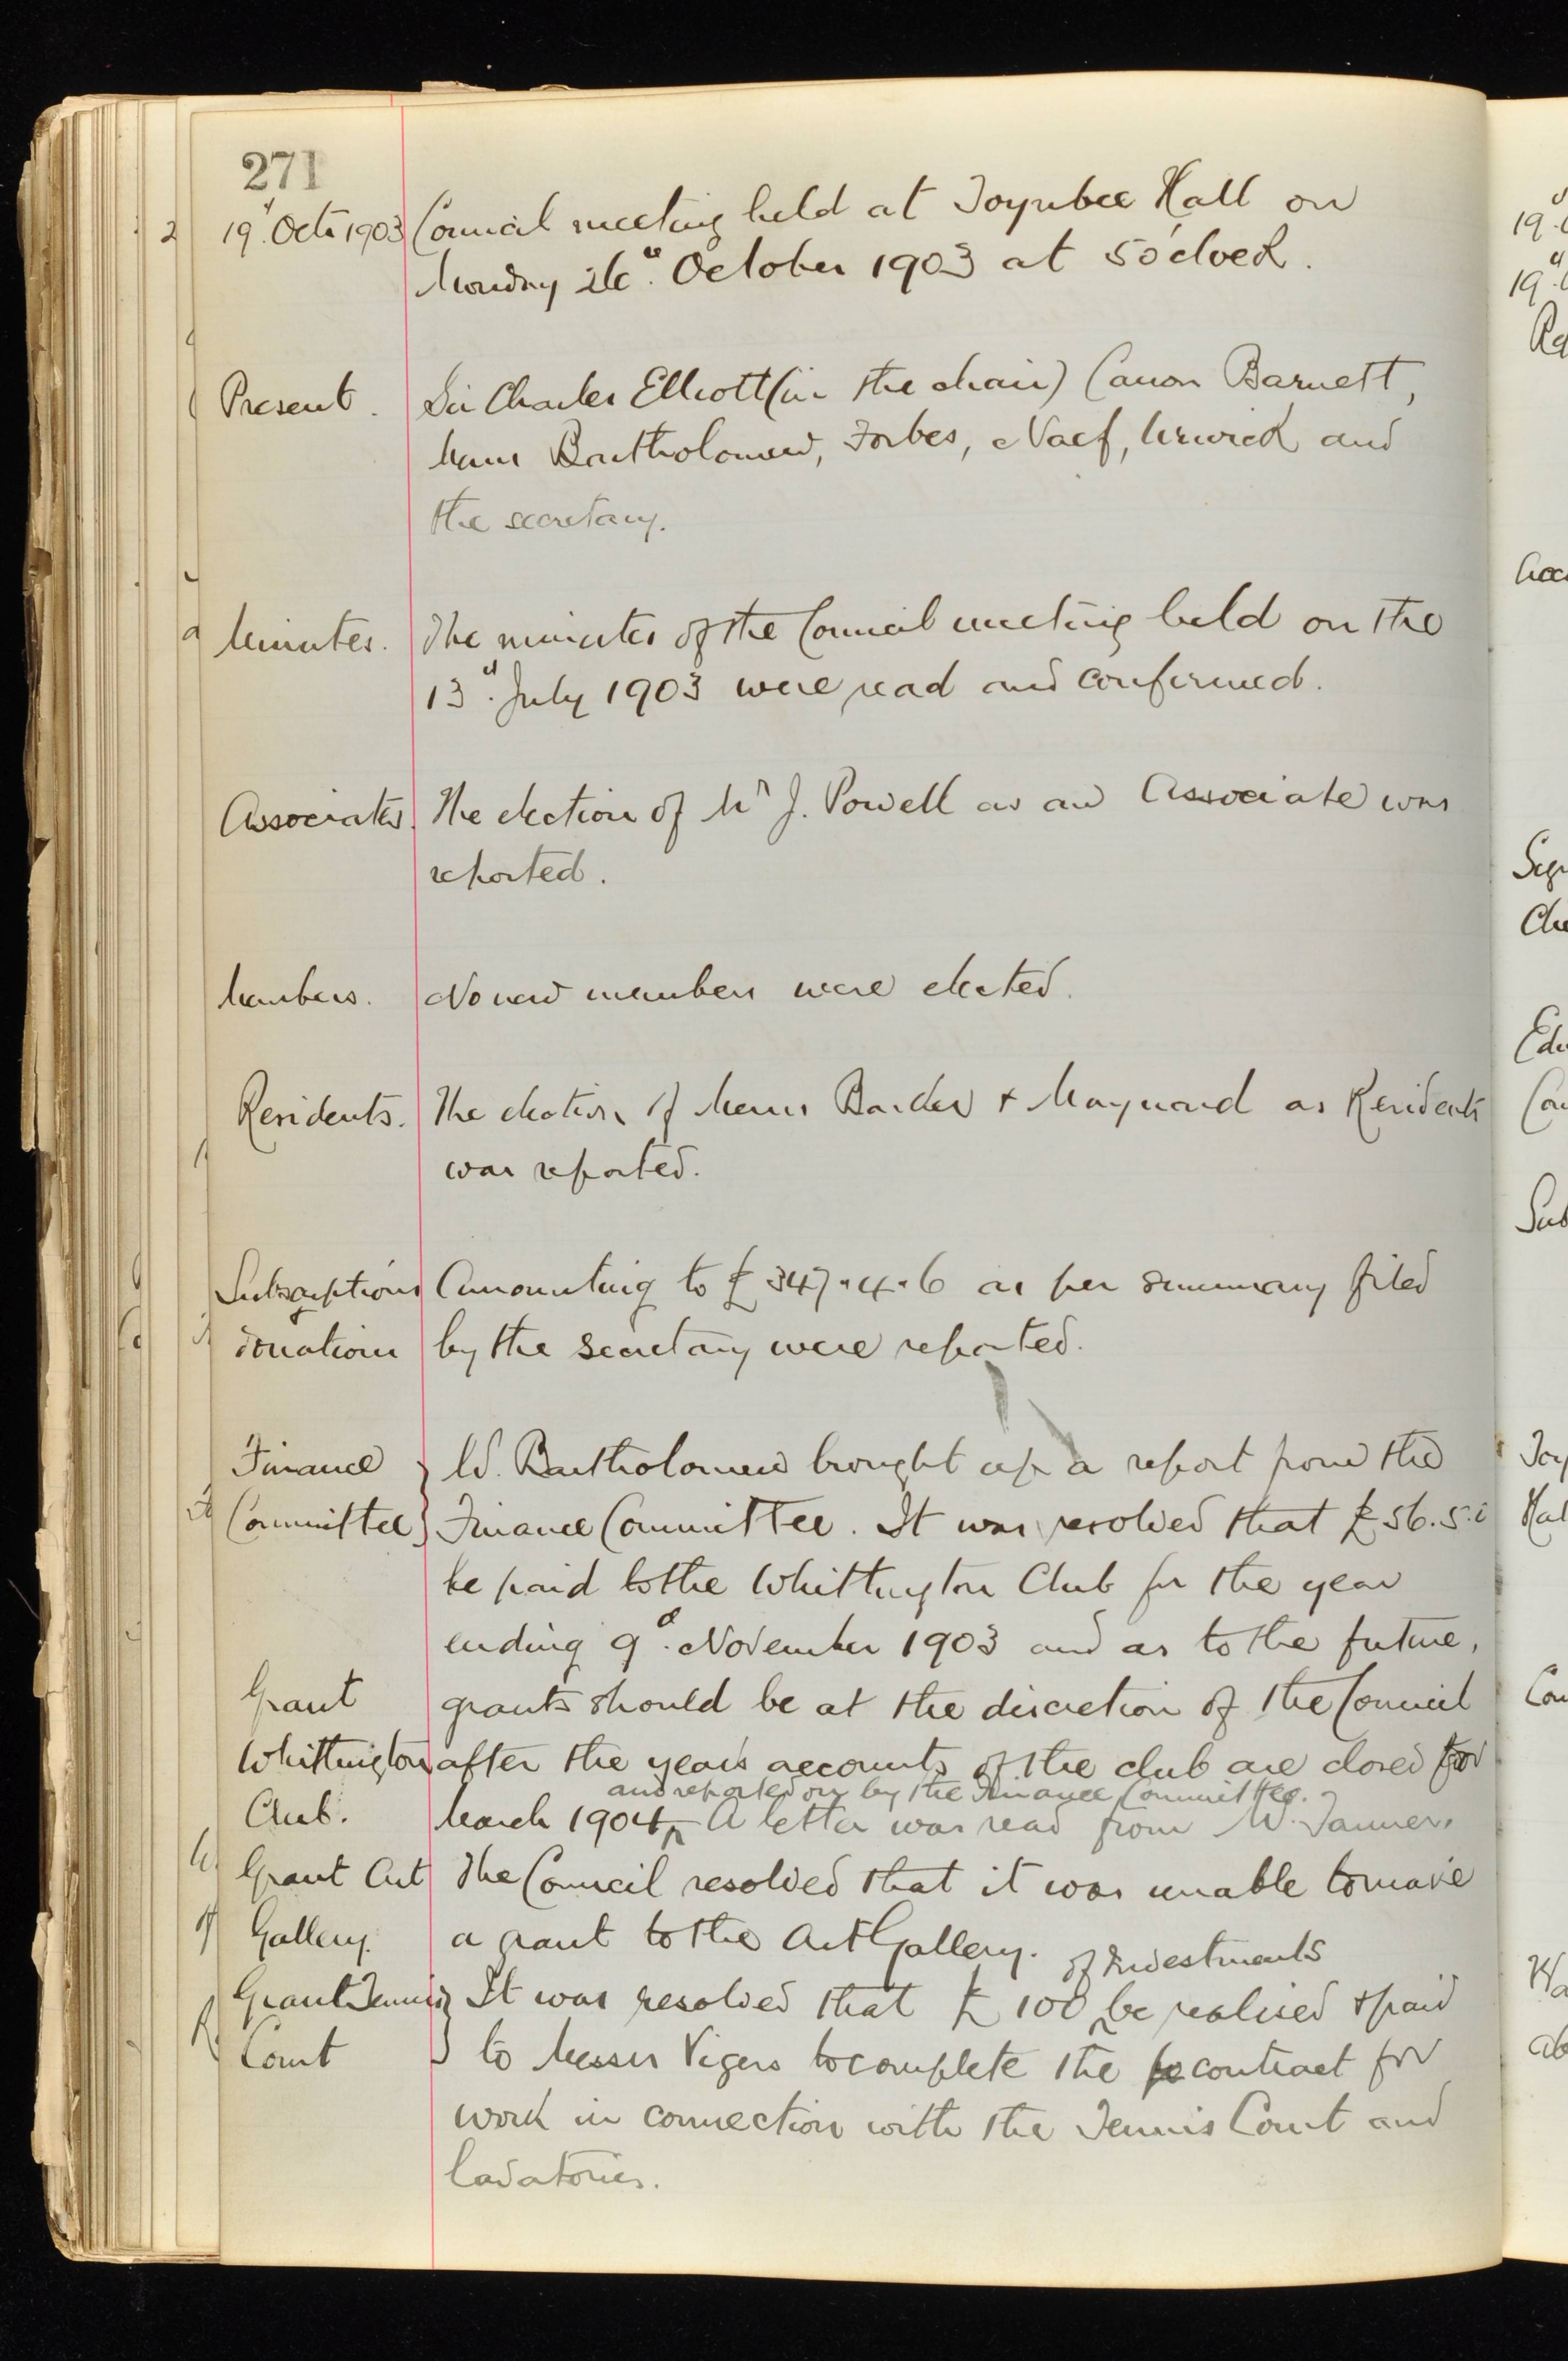 271
19th Octr 1903 Council meeting held at Toynbee Hall on
Monday October 1903 at 5 o'clock.
Present. Sir Charles Elliott (in the chair) Canon Barnett,
Messrs Bartholomew, Forbes, Naef, Urwick and
the secretary.
Minutes. The minutes of the Council meeting held on the
13th July 1903 were read and confirmed.
Associates. The election of Mr J. Powell as an Associate was
reported.
Members. No new members were elected.
Residents. The election of Messrs & Maynard as Residents
was reported.
Subscriptions Amounting to £347.4.6 as per summary filed
donations by the secretary were reported.
Finance } Mr. Bartholomew brought up a report from the
Committee } Finance Committee. It was resolved that £56.5.
be paid to the Whittington Club for the year
ending 9th November 1903 and as to the future,
Grant grants should be at the discretion of the Council
Whittington after the year's accounts of the club are closed for
and reported on by the Finance Committee.
Club. March 1904 ^ A letter was read from Mr. Tanner.
Grant Art The Council resolved that it was unable to make
Gallery. a grant to the Art Gallery.
of Investments
Grant Tennis } It was resolved that £100 ^ be realised & paid
Court } to Messrs Vigers to complete the contract for
work in connection with the Tennis Court and
lavatories.